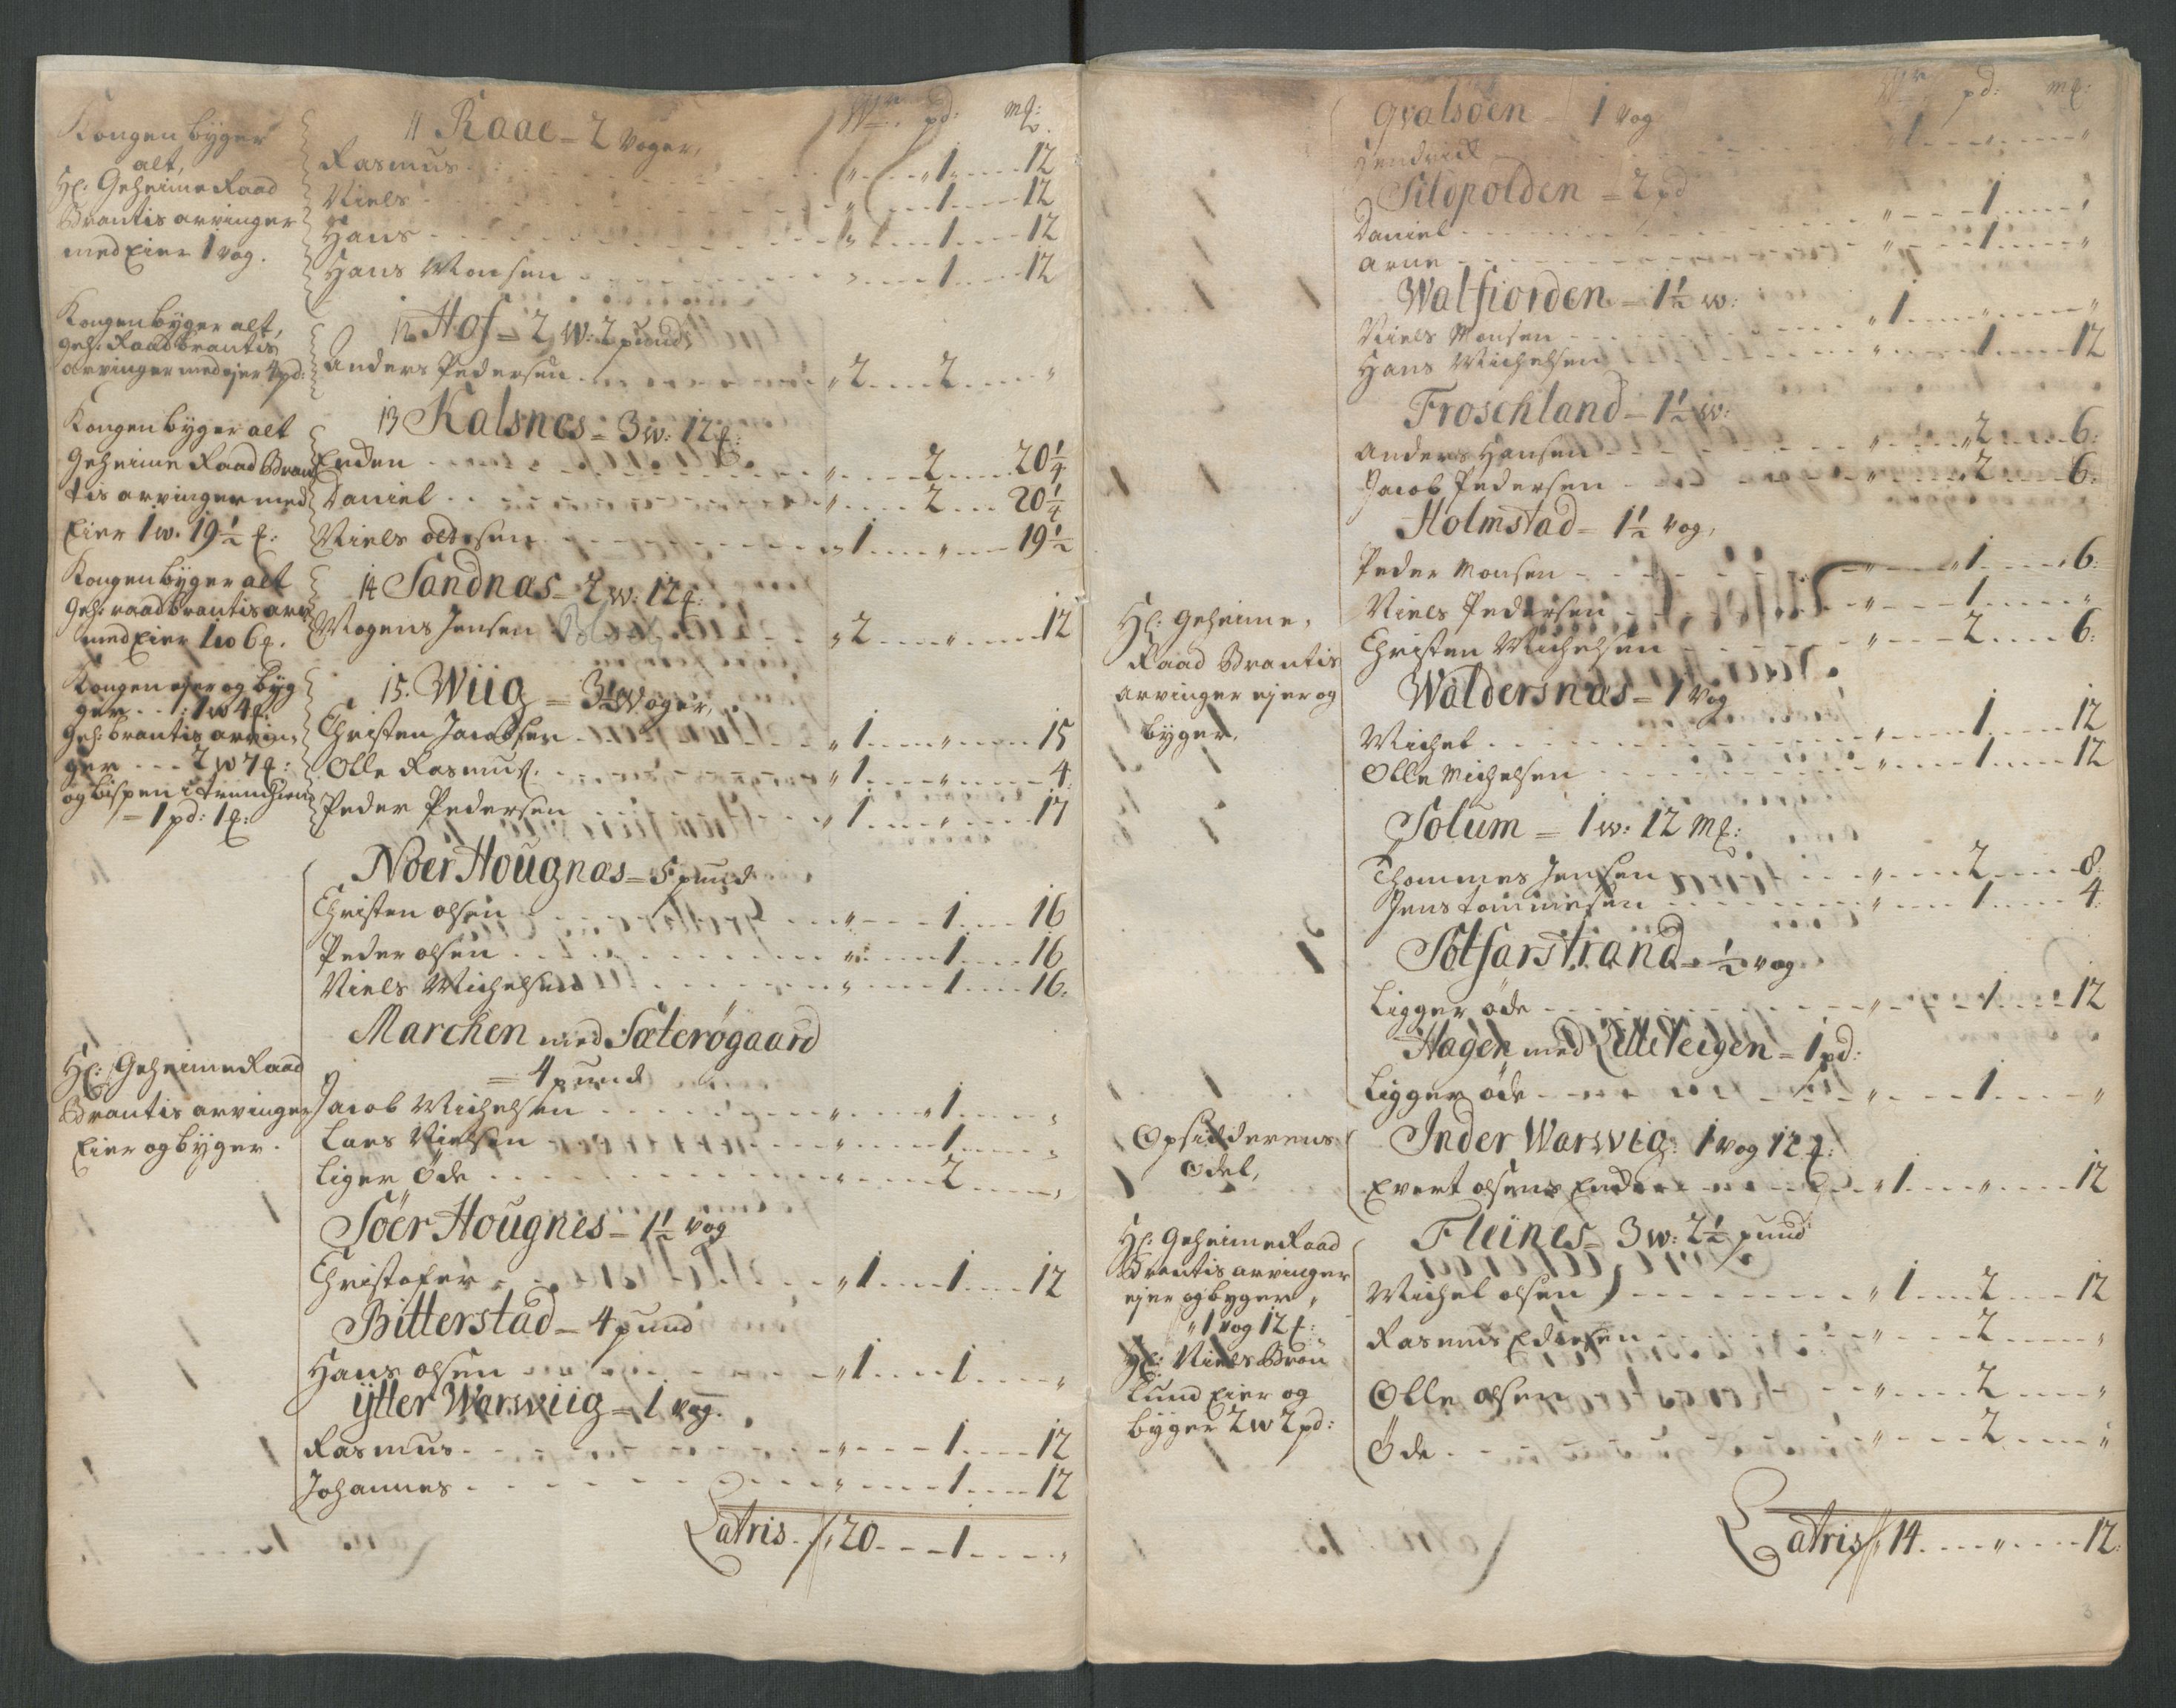 W: pd: m&:
Kongen bÿger
alt,
H&: Geheime Raad
Brantis arvinger
med Eier 1 vog.
11 Raae = 2 voger,
Rasmus - - - " - - - 1 - - - 12
Niels - - - " - - - 1 - - - 12
Hans - - - " - - - 1 - - - 12
Hans Monsen - - - " - - - 1 - - - 12
Kongen bÿger alt,
geh: Raad brantis
arvinger med ejer 4 pd:
12 Hof = 2 W: 2 pund,
Anders Pedersen - - - 2 - - - 2 - - - "
Kongen bÿger alt
Geheime Raad Bran
tis arvinger med
Eier 1 w. 19½ &:
13 Kalsnes = 3 w: 12 &:
Enden - - - " - - - 2 - - - 20¼
Daniel - - - " - - - 2 - - - 20¼
Niels oltesen - - - 1 - - - " - - - 19½
Kongen bÿger alt
Geh: raad brantis arv
med Eier 1 w 6 &.
14 Sandnas = 2 w: 12 &:
Mogens Jensen - - - 2 - - - " - - - 12
Kongen ejer og bÿg
ger - - 1 w 4 &:
Geh: brantis arvin,
ger - - - 2 w 7 &:
og bispen i trundhiem
= 1 pd: 1 &:
15. Wiig = 3½ Woger,
Christen Jacobsen - - - 1 - - - " - - - 15
Olle Rasmus&. - - - 1 - - - " - - - 4
Peder Pedersen - - - 1 - - - " - - - 17
H&: Geheime Raad
Brantis arvinger
Eier og bÿger.
Noer Hougnas = 5 pund
Christen olsen - - - " - - - 1 - - - 16
Peder olsen - - - " - - - 1 - - - 16
Niels Michelsen - - - " - - - 1 - - - 16:
Marchen med Sæterøgaard
= 4 pund
Jacob Michelsen - - - " - - - 1 - - - "
Lars Nielsen - - - " - - - 1 - - - "
Liger Öde - - - " - - - 2 - - - "
Söer Hougnes = 1½ vog
Christofer - - - 1 - - - 1 - - - 12
Bitterstad = 4 pund
Hans olsen - - - 1 - - - 1 - - - "
ÿtter Warwiig = 1 vog.
Rasmus - - - " - - - 1 - - - 12
Johannes - - - " - - - 1 - - - 12
Latris - // 20 - - - 1 - - - "
W: pd: m&:
Qvalsöen = 1 vog
Hendrick - - - 1 - - - " - - - "
Sildpolden = 2 pd
Daniel - - - " - - - 1 - - - "
Arne - - - " - - - 1 - - - "
Walfiorden = 1½ w:
Niels Monsen - - - 1 - - - " - - - "
Hans Michelsen - - - " - - - 1 - - - 12
Froschland = 1½ w:
Anders Hansen - - - " - - - 2 - - - 6:
Jacob Pedersen - - - " - - - 2 - - - 6:
Holmstad = 1½ vog,
Peder Monsen - - - " - - - 1 - - - 6:
Niels Pedersen - - - " - - - 1 - - - "
Christen Michelsen - - - " - - - 2 - - - 6:
H&: Geheime,
Raad Brantis
arvinger ejer og
bÿger,
Waldersnas = 1 vog
Michel - - - " - - - 1 - - - 12
Olle Michelsen - - - " - - - 1 - - - 12
Solum = 1 w: 12 m&:
Thommes Jensen - - - " - - - 2 - - - 8:
Jens tommesen - - - " - - - 1 - - - 4:
Sotfarstrand = ½ vog
Ligger öde - - - " - - - 1 - - - 12
Hagen med Litleteigen = 1 pd:
Ligger öde - - - " - - - 1 - - - "
Opsidderens
Odel,
Inder Warwig: 1 vog 12 &:
Evert olsens Ende - - - 1 - - - " - - - 12
H&: Geheime Raad
Brantis arvinger
ejer og bÿger,
" 1 vog 12 &:
H&: Niels Brön
lund Eier og
bÿger 2 w 2 pd:
Fleines = 3 w: 2½ pund
Michel olsen - - - 1 - - - 2 - - - 12
Rasmus Edissen - - - " - - - 2 - - - "
Olle olsen - - - " - - - 2 - - - "
Öde - - - " - - - 2 - - - "
Latris // 14 - - - " - - - 12:
3